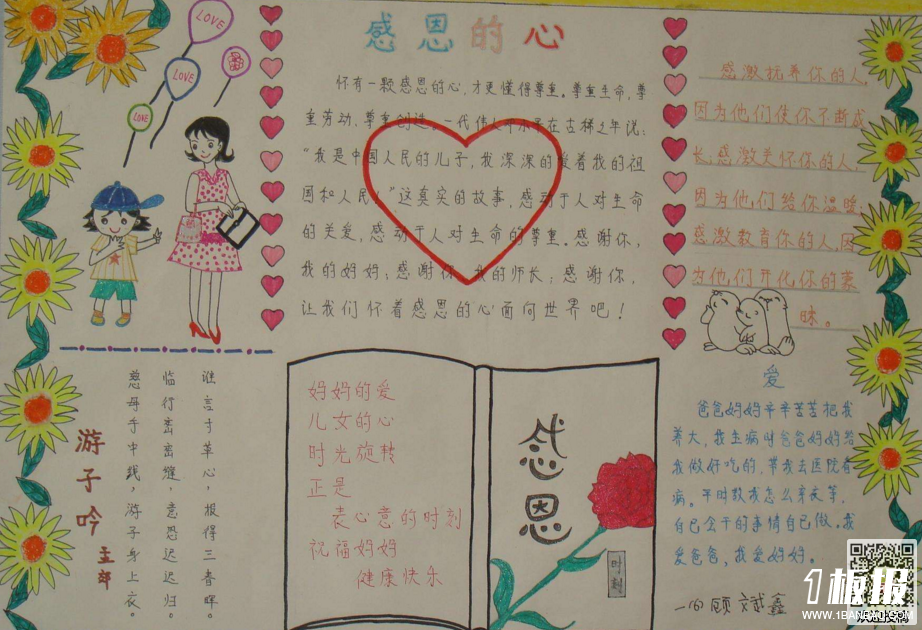 感恩的心
LOVE
LOVE
LOVE
怀有一颗感恩的心,才更懂得尊重。尊重生命,尊
重劳动,尊重创造。一代伟人邓小平在古稀之年说:
“我是中国人民的儿子,我深深的爱着我的祖
国和人民。”这真实的故事,感动于人对生命
的关爱,感动于人对生命的尊重。感谢你,
我的妈妈;感谢你 我的师长;感谢你,
让我们怀着感恩的心面向世界吧!
感激抚养你的人,
因为他们使你不断成
长;感激关怀你的人,
因为他们给你温暖;
感激教育你的人,因
为他们开化你的蒙
昧。
游子吟
孟郊
慈母手中线,游子身上衣。
临行密密缝,意恐迟迟归。
谁言寸草心,报得三春晖。
妈妈的爱
儿女的心
时光旋转
正是
表心意的时刻
祝福妈妈
健康快乐
感恩
时刻
爱
爸爸妈妈辛辛苦苦把我
养大,我生病时爸爸妈妈给
我做好吃的,带我去医院看
病。平时教我怎么穿衣等,
自己会干的事情自己做。我
爱爸爸,我爱妈妈。
顾斌鑫
1板报
WWW.1BANBAO.COM